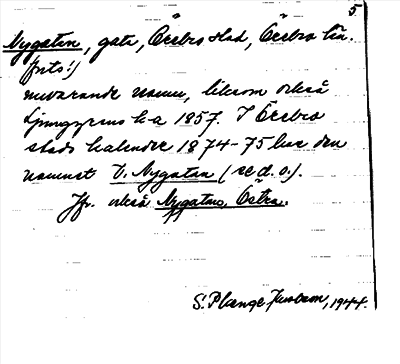 5.
Nygatan, gata, Örebro stad, Örebro län.
(forts.)
nuvarande namn, liksom också
1857. I Örebro
stads kalender 1874-75 har den
namnet V. Nygatan (se d. o.).
Jfr. också Nygatan, Östra.
S. Plange 1944.